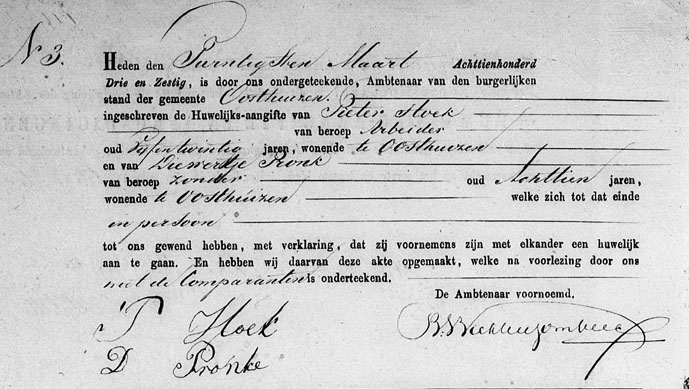 N 3.
Heden den Twintigsten Maart Achttienhonderd
Drie en Zestig, is door ons ondergeteekende, Ambtenaar van den burgerlijken
stand der gemeente Oosthuizen.
ingeschreven de Huwelijks-aangifte van Pieter Hoek
van beroep Arbeider
oud Vijfentwintig jaren, wonende te Oosthuizen
en van Diewertje Pronk
van beroep zonder oud Achttien jaren,
wonende te Oosthuizen welke zich tot dat einde
in persoon
tot ons gewend hebben, met verklaring, dat zij voornemens zijn met elkander een huwelijk
aan te gaan. En hebben wij daarvan deze akte opgemaakt, welke na voorlezing door ons
met de Comparanten is onderteekend.
De Ambtenaar voornoemd.
Hoek
D Pronke